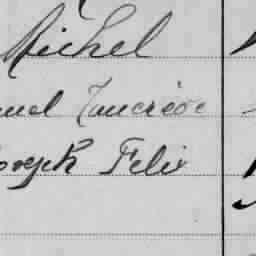 Michel
uel Tancrède
oseph Felix